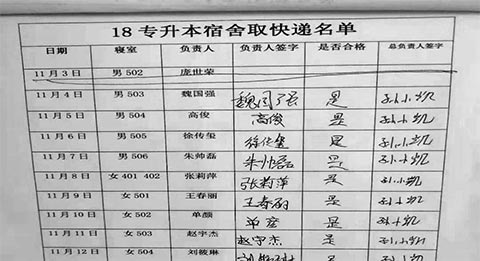 18 专升本宿舍取快递名单
日期 寝室 负责人 负责人签字 是否合格 总负责人签字
11月3日 男 502 庞世荣
11月4日 男 503 魏国强 魏国强 是 孙小凯
11月5日 男 504 高俊 高俊 是 孙小凯
11月6日 男 505 徐传玺 徐传玺 是 孙小凯
11月7日 男 506 朱帅磊 朱帅磊 是 孙小凯
11月8日 女 401 402 张莉萍 张莉萍 是 孙小凯
11月9日 女 501 王春丽 王春丽 是 孙小凯
11月10日 女 502 单颜 单 是 孙小凯
11月11日 女 503 赵宇杰 赵宇杰 是 孙小凯
11月12日 女 504 刘筱琳 是 孙小凯